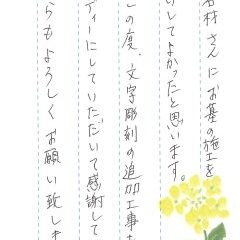 石材さんにお墓の施工を
いしてよかったと思います。
この度、文字彫刻の追加工事も
ディーにしていただいて感謝して
らもよろしくお願い致しま